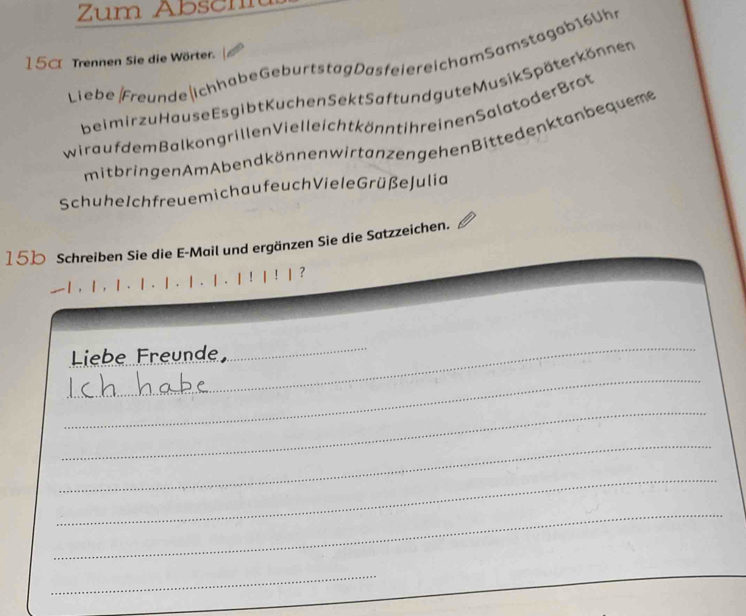 Zum Abschlu
15a Trennen Sie die Wörter.
Liebe|Freunde|IchhabeGeburtstagDasfeiereichamSamstagab16Uhr
beimirzuHauseEsgibtKuchenSektSaftundguteMusikSpäterkönnen
wiraufdemBalkongrillenVielleichtkönntihreinenSalatoderBrot
mitbringenAmAbendkönnenwirtanzengehenBittedenktanbequeme
SchuheIchfreuemichaufeuchVieleGrüßeJulia
15b Schreiben Sie die E-Mail und ergänzen Sie die Satzzeichen.
| , | , | . | . | . | . | . | ! | ! | ?
Liebe Freunde,
Ich habe